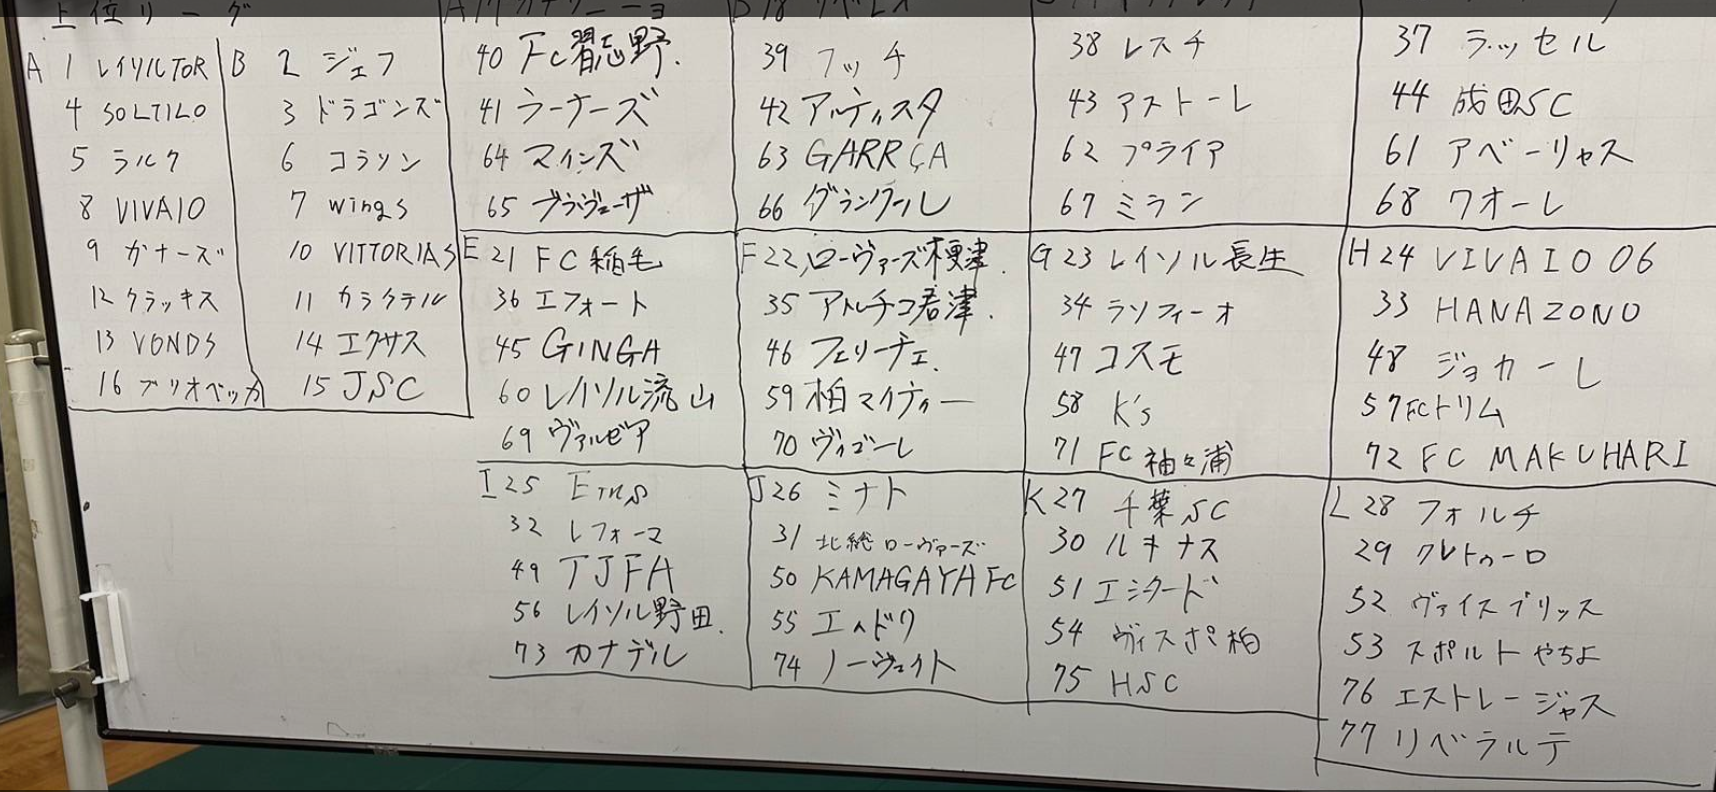 上位リーグ
A 1 レイソルTOR
4 SOLTILO
5 ラルク
8 VIVAIO
9 ガナーズ
12 クラッキス
13 VONDS
16 ブリオベッカ
B 2 ジェフ
3 ドラゴンズ
6 コラソン
7 wings
10 VITTORIAS
11 カラクテル
14 エクサス
15 JSC
40 FC習志野.
41 ラーナーズ
64 マインズ
65 ブラヴューザ
39 フッチ
42 アルティスタ
63 GARRÇA
66 グランクール
38 レスチ
43 アストーレ
62 プライア
67 ミラン
37 ラッセル
44 成田SC
61 アベーリャス
68 ワオーレ
E 21 FC稲毛
36 エフォート
45 GINGA
60 レイソル流山
69 ヴァルピア
F 22 ローヴァーズ木更津.
35 アトルチコ君津.
46 フェリーチェ.
59 柏マイティー
70 ヴィゴーレ
G 23 レイソル長生
34 ラソフィーオ
47 コスモ
58 K's
71 FC袖ヶ浦
H 24 VIVAIO 06
33 HANAZONO
48 ジョカーレ
57 FCトリム
72 FC MAKUHARI
I 25
32 レフォーマ
49 TJFA
56 レイソル野田.
73 カナデル
J 26 ミナト
31 北総ローヴァーズ
50 KAMAGAYA FC
55 エルドリ
74 ノーヴェイト
K 27 千葉SC
30 ルキナス
51 エシタード
54 ヴィスポ柏
75 HSC
L 28 フォルチ
29 クレトゥーロ
52 ヴァイスブリッス
53 スポルトやちよ
76 エストレージャス
77 リベラルテ